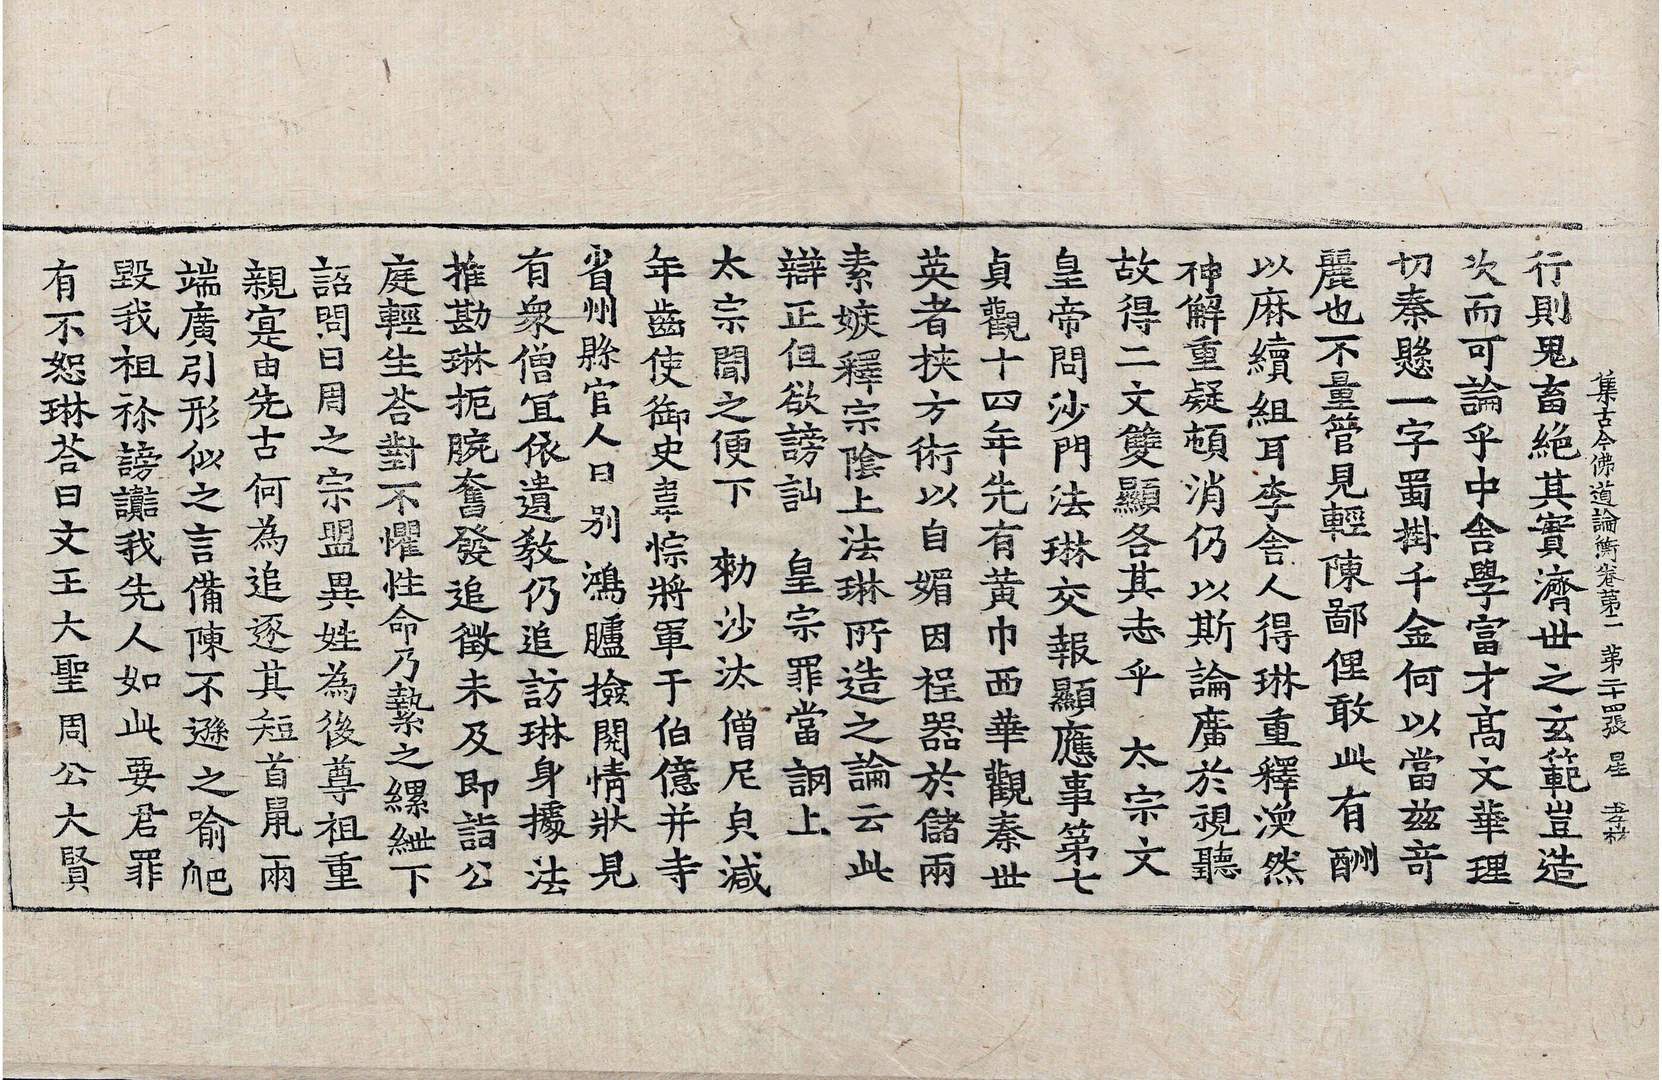 集古今佛道論衡卷第二 第二十四張 星
行則鬼畜絕其實濟世之玄範豈造
次而可論乎中舍學富才高文華理
切秦懸一字蜀掛千金何以當兹竒
麗也不量管見輕陳鄙俚敢此有酬
以麻續組耳李舍人得琳重釋渙然
神解重疑頓消仍以斯論廣於視聽
故得二文雙顯各其志乎 太宗文
皇帝問沙門法琳交報顯應事第七
貞觀十四年先有黃巾西華觀秦世
英者挾方術以自媚因程器於儲兩
素嫉釋宗陰上法琳所造之論云此
辯正但欲謗訕 皇宗罪當誷上
太宗聞之便下 勑沙汰僧尼貞減
年齒使御史韋悰將軍于伯億并寺
省州縣官人曰别 鴻臚撿閱情狀見
有衆僧冝依遺教仍追訪琳身據法
推勘琳扼腕奮發追徵未及即詣公
庭輕生荅對不懼性命乃縶之縲紲下
詔問曰周之宗盟異姓為後尊祖重
親寔由先古何為追逐其短首鼠兩
端廣引形似之言備陳不遜之喻爬
毀我祖祢謗讟我先人如此要君罪
有不恕琳荅曰文王大聖周公大賢